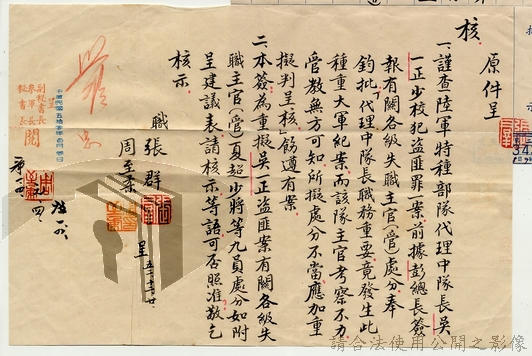 原件呈
核。
一、謹查陸軍特種部隊代理中隊長吳
一正少校犯盜匪罪案前據彭總長簽
報有關各級失職主官(管)處分奉
鈞批「代理中隊長職務重要竟發生此
種重大軍紀案而該隊主官考察不力
管教無方可知所擬處分不當應加重
擬判呈核」飭遵有案。
二、本簽為重擬吳一正盜匪案有關各級失
職主官(管)夏超少將等九員處分如附
呈建議表請核示等語可否照准敬乞
核示。
職 張群
周至柔
呈
副秘書長
參軍長
秘書長
閱
請合法使用公開之影像